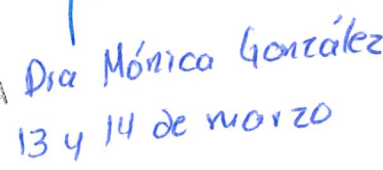 Dra Mónica González
13 y 14 de marzo